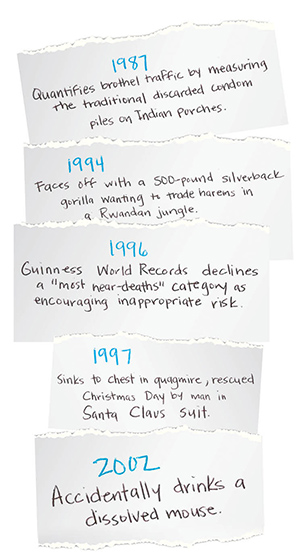 1987
Quantifies brothel traffic by measuring
the traditional discarded condom
piles on Indian porches.
1994
Faces off with a 500-pound silverback
gorilla wanting to trade harens in
a Rwandan jungle.
1996
Guinness World Records declines
a "most near-deaths" category as
encouraging inappropriate risk.
1997
Sinks to chest in quagmire, rescued
Christmas Day by man in
Santa Claus suit.
2002
Accidentally drinks a
dissolved mouse.